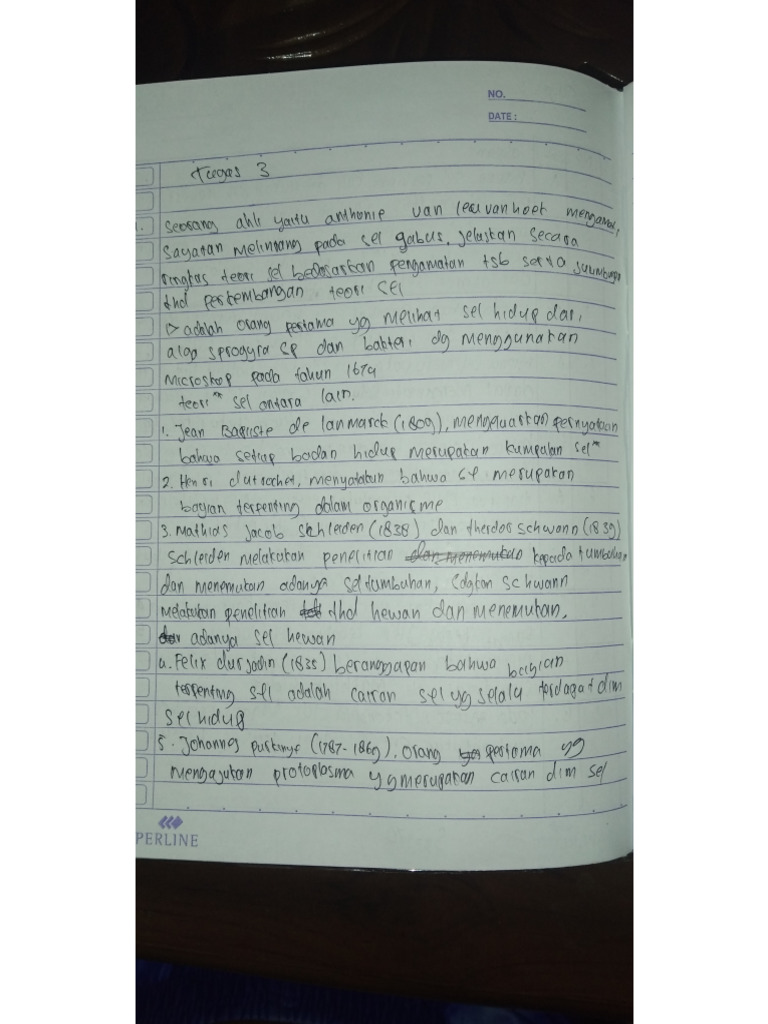 NO.
DATE :
Tugas 3
1. Seorang ahli yaitu anthonie van leeuvanhoek mengamati
Sayatan Melintang pada sel gabus, jelaskan secara
ringkas teori sel bedasarkan pengamatan tsb serta sumbangan
thd perkembangan teori sel
▷ adalah orang pertama yg melihat sel hidup dari
alga sprogyra sp dan bakteri dg menggunakan
Microskop pada tahun 1674
teori" sel antara lain.
1. Jean Baqtiste de lanmarck (1809), mengeluarkan pernyataan
bahwa setiap badan hidup merupakan kumpulan sel"
2. Henri dutrochet, menyatakan bahwa sel merupakan
bagian terpenting dalam organisme
3. Mathias Jacob Schleiden (1838) dan therdor schwann (1839)
Schleiden melakukan penelitian dan menemukan kepada tumbuhan
dan menemukan adanya sel tumbuhan, sdgkan schwann
melakukan penelitian thd hewan dan menemukan
adanya sel hewan
4. Felix durjadin (1835) beranggapan bahwa bagian
terpenting sel adalah cairan sel yg selalu terdapat dlm
sel hidup
5. Johannes purkinye (1787-1869). orang pertama yg
mengajukan protoplasma yg merupakan cairan dlm sel
PERLINE